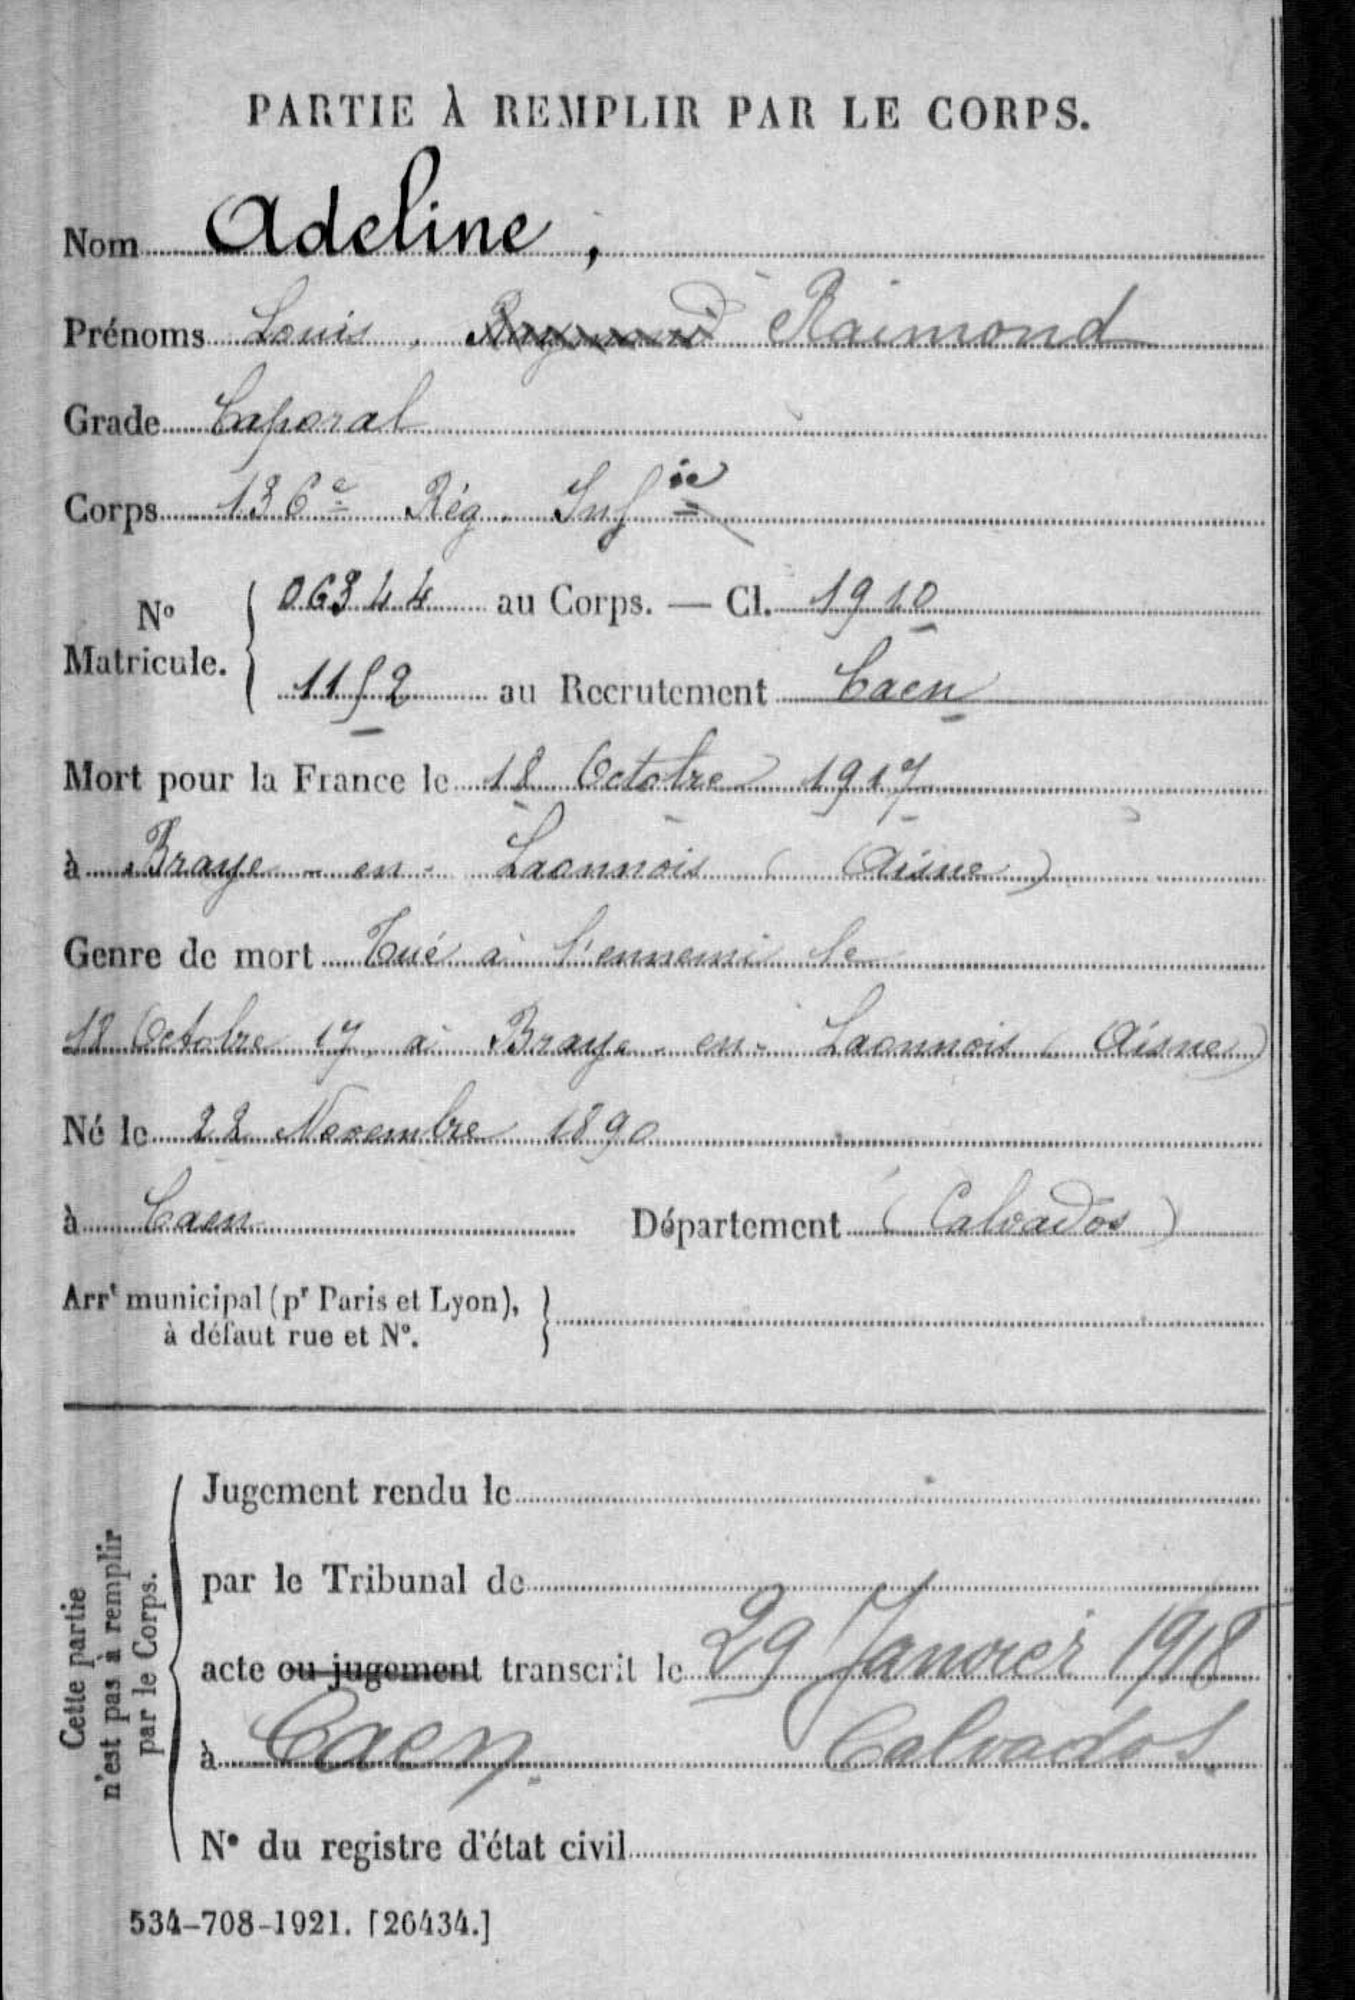 PARTIE À REMPLIR PAR LE CORPS.
Nom Adeline,
Prénoms Louis, Raymond Raimond
Grade Caporal
Corps 136e Rég. Infie
No Matricule. 06344 au Corps. — Cl. 1910
1152 au Recrutement Caen
Mort pour la France le 18 Octobre 1917
à Braye-en-Laonnois (Aisne)
Genre de mort Tué à l'ennemi le
18 Octobre 17 à Braye-en-Laonnois (Aisne)
Né le 22 Novembre 1890
à Caen Département (Calvados)
Arrt municipal (pr Paris et Lyon),
à défaut rue et No.
Cette partie
n'est pas à remplir
par le Corps.
Jugement rendu le
par le Tribunal de
acte ou jugement transcrit le 29 Janvier 1918
à Caen. Calvados.
No du registre d'état civil
534-708-1921. [26434.]